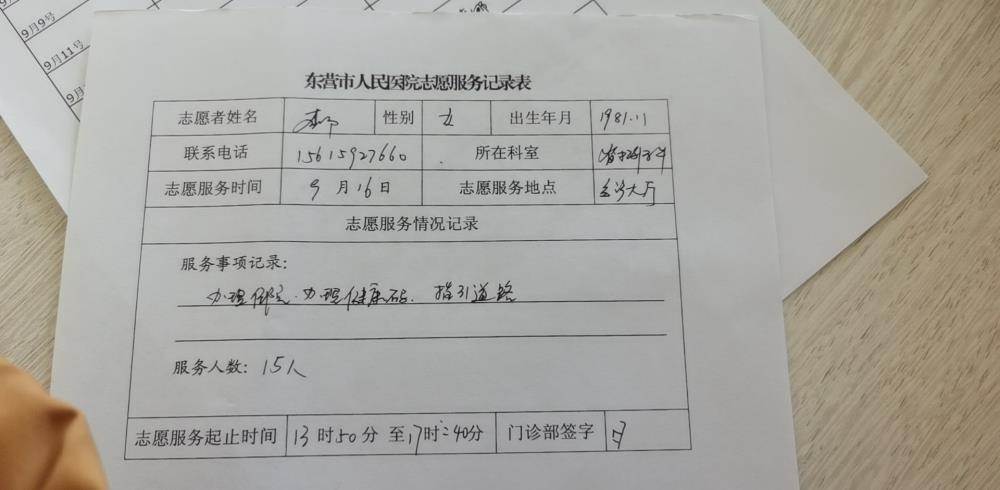 9月9号
9月11号
9月
东营市人民医院志愿服务记录表
志愿者姓名 性别 女 出生年月 1981.11
联系电话 15615927660 所在科室
志愿服务时间 9月16日 志愿服务地点 大厅
志愿服务情况记录
服务事项记录：
办理住院.办理健康码. 指引道路
服务人数：15人
志愿服务起止时间 13时50分 至17时40分 门诊部签字